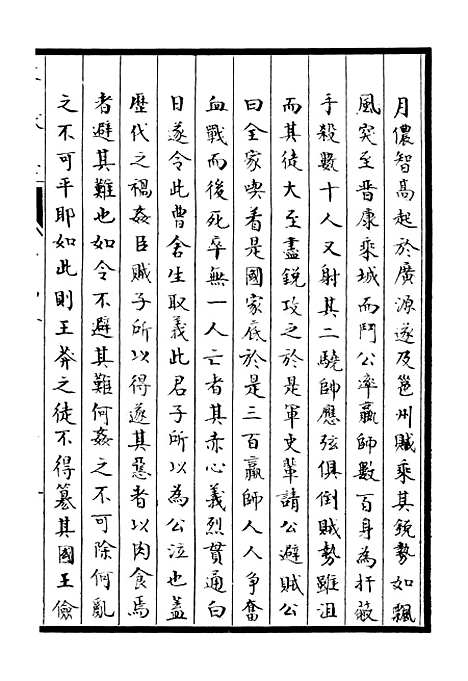 月儂智高起於廣源遂及邕州賊乘其銳勢如飄
風突至晉康乘城而鬥公率羸師數百身為扞蔽
手殺數十人又射其二驍帥應弦俱倒賊勢雖沮
而其徒大至盡銳攻之於是軍吏輩請公避賊公
曰全家喫着是國家底於是三百羸師人人爭奮
血戰而後死卒無一人亡者其赤心義烈貫通白
日遂令此曹舍生取義此君子所以為公泣也蓋
歷代之禍姦臣賊子所以得遂其惡者以肉食焉
者避其難也如令不避其難何姦之不可除何亂
之不可平耶如此則王莽之徒不得簒其國王儉